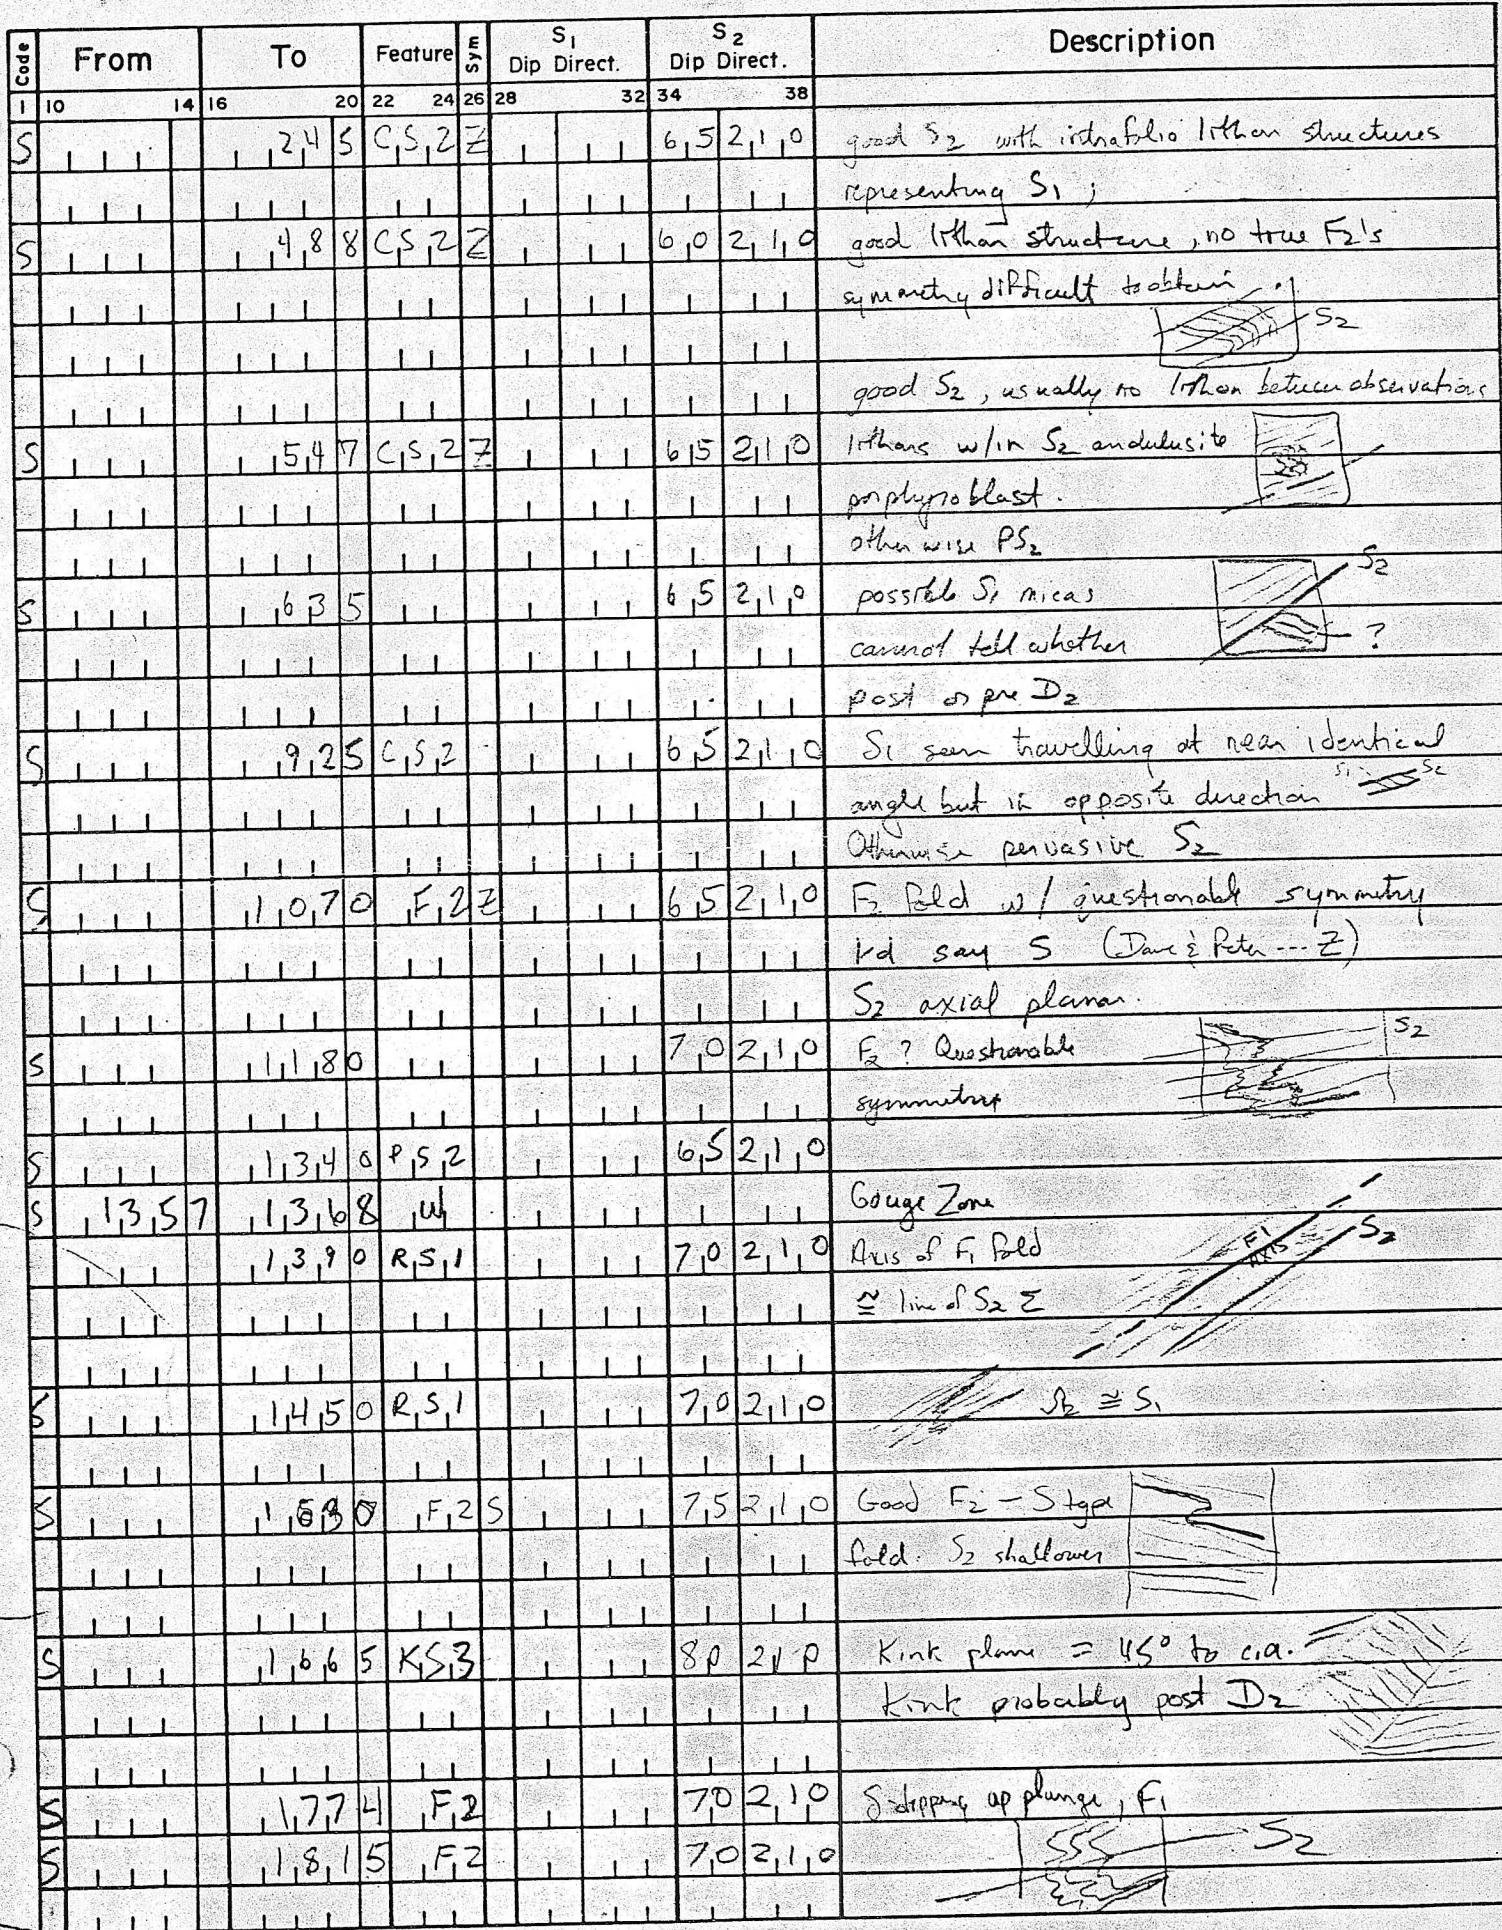 Code From To Feature Sym S1 Dip Direct. S2 Dip Direct. Description
1 10 14 16 20 22 24 26 28 32 34 38
S 245 CS2 Z 65 210 good S2 with intrafolio lithon structures
representing S1 ;
S 488 CS2 Z 60 210 good lithan structure, no true F2's
symmetry difficult to obtain
S2
good S2, usually no lithon between observations
S 547 CS2 Z 65 210 lithons w/in S2 andulusite
porphyroblast.
otherwise PS2
S 635 65 210 possible S1 micas S2
cannot tell whether ?
post or pre D2
S 925 CS2 65 210 S1 seen travelling at near identical
angle but in opposite direction S1 S2
Otherwise pervasive S2
S 1070 F2 Z 65 210 F2 fold w/ questionable symmetry
I'd say S (Dave & Peter --- Z)
S2 axial planar.
S 1180 70 210 F2 ? Questionable S2
symmetry
S 1340 PS2 65 210
S 1357 1368 W Gouge Zone
1390 RS1 70 210 Axis of F1 fold F1 AXIS S2
≅ line of S2 Σ
S 1450 RS1 70 210 S2 ≅ S1
S F2 S 75 210 Good F2 - S type
fold. S2 shallower
S 1665 KS3 80 210 Kink plane = 45° to c.a.
Kink probably post D2
S 1774 F2 70 210 up plunge, F1
S 1815 F2 70 210 S2